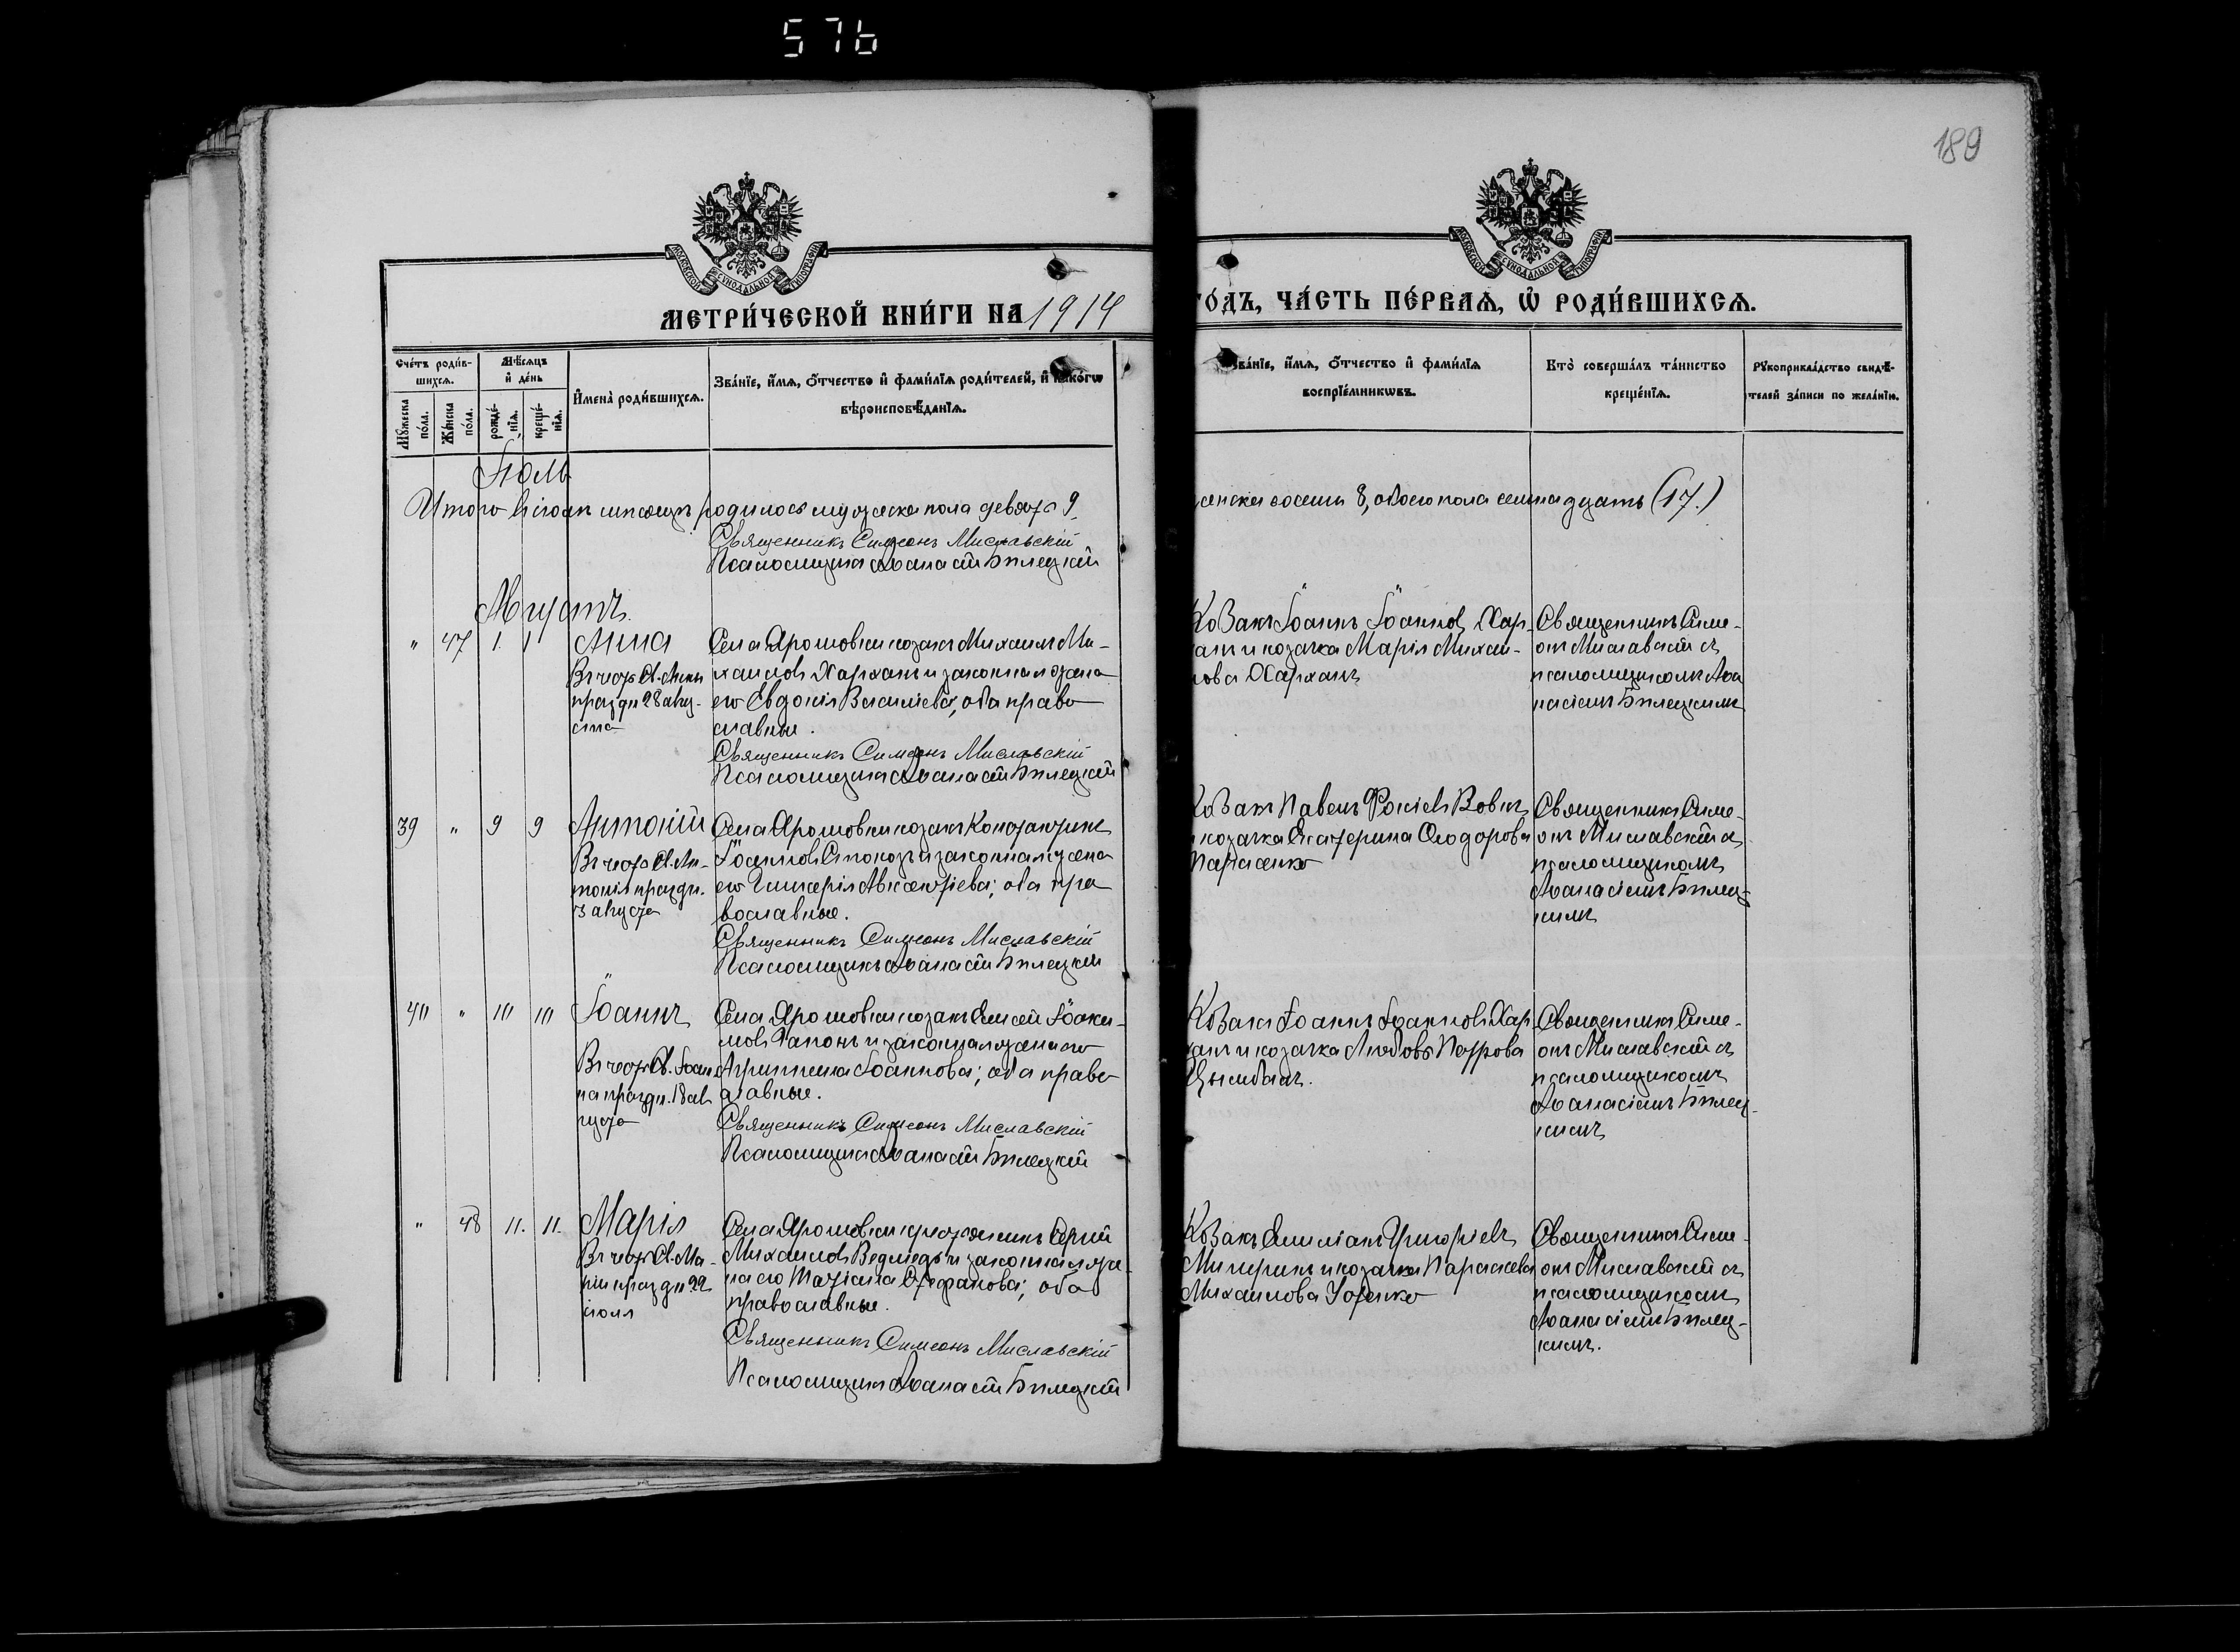 576
189
МЕТРИ́ЧЕСКОЙ КНИ́ГИ НА 1914
ГО́ДЪ, ЧА́СТЬ ПЕ́РВАѦ, Ѡ҆ РОДИ́ВШИХСѦ.
Сче́тъ роди́в-
шихсѧ.
Мѣ́сѧцъ
и҆ де́нь
Мꙋ́жеска
по́ла.
Же́нска
по́ла.
рожде́-
нїѧ.
креще́-
нїѧ.
И҆мена̀ роди́вшихсѧ.
Зва́нїе, и҆́мѧ, ѻ҆́тчество и҆ фами́лїѧ роди́телей, и҆ како́гѡ
вѣроисповѣ́данїѧ.
Зва́нїе, и҆́мѧ, ѻ҆́тчество и҆ фами́лїѧ
воспрїе́мникѡвъ.
Кто̀ соверша́лъ та́инство
креще́нїѧ.
Рꙋкоприкла́дство свидѣ́-
телей за́писи по жела́нїю.
Іюль
Итого в іюлѣ мѣсяцѣ родилось мужеска пола девять 9,
женска восемь 8, обоего пола семнадцать (17.)
Священникъ Симеонъ Миславскій
Псаломщикъ Аѳанасій Билецкій
Августъ.
" 47 1. 1 Анна
Въ честь Св. Анны
праздн 28 авгу-
ста
Села Ярошовки козакъ Михаилъ Ми-
хаиловъ Харханъ и законная жена
его Евдокія Васильева, оба право
славные.
Священникъ Симеонъ Миславскій
Псаломщикъ Аѳанасій Билецкій
Козакъ Іоаннъ Іоанновъ Хар-
ханъ и козачка Марія Михаи-
лова Харханъ
Священникъ Симе-
онъ Миславскій съ
псаломщикомъ Аѳа
насіемъ Билецкимъ
39 " 9 9 Антоній
Въ честь Св. Ан-
тонія праздн.
3 августа
Села Ярошовки козакъ Кондратъ
Іоанновъ Стокозъ и законная жена
его Гликерія Авксентіева; оба пра
вославные.
Священникъ Симеонъ Миславскій
Псаломщикъ Аѳанасій Билецкій
Козакъ Павелъ Вовкъ
и козачка Екатерина Ѳеодорова
Панасенко
Священникъ Симе-
онъ Миславскій съ
псаломщикомъ
Аѳанасіемъ Билец-
кимъ
40 " 10 10 Іоаннъ
Въ честь Св. Іоан
на праздн. 18 ав
густа
Села Ярошовки козакъ Елисей Іоаки-
мовъ Гапонъ и законная жена его
Агриппина Іоаннова; оба право
славные.
Священникъ Симеонъ Миславскій
Псаломщикъ Аѳанасій Билецкій
Козакъ Іоаннъ Іоанновъ Хар
ханъ и козачка Любовь Петрова
Цымбалъ.
Священникъ Симе-
онъ Миславскій съ
псаломщикомъ
Аѳанасіемъ Билец-
кимъ
" 48 11. 11. Марія
Въ честь Св. Ма-
ріи праздн 22
іюля
Села Ярошовки крестьянинъ Сергій
Михаиловъ Ведмедь и законная же-
на его Татіана Стефанова; оба
православные.
Священникъ Симеонъ Миславскій
Псаломщикъ Аѳанасій Билецкій
Козакъ Емиліанъ Григоріевъ
и козачка Параскева
Михаилова
Священникъ Симе-
онъ Миславскій съ
псаломщикомъ
Аѳанасіемъ Билец-
кимъ.